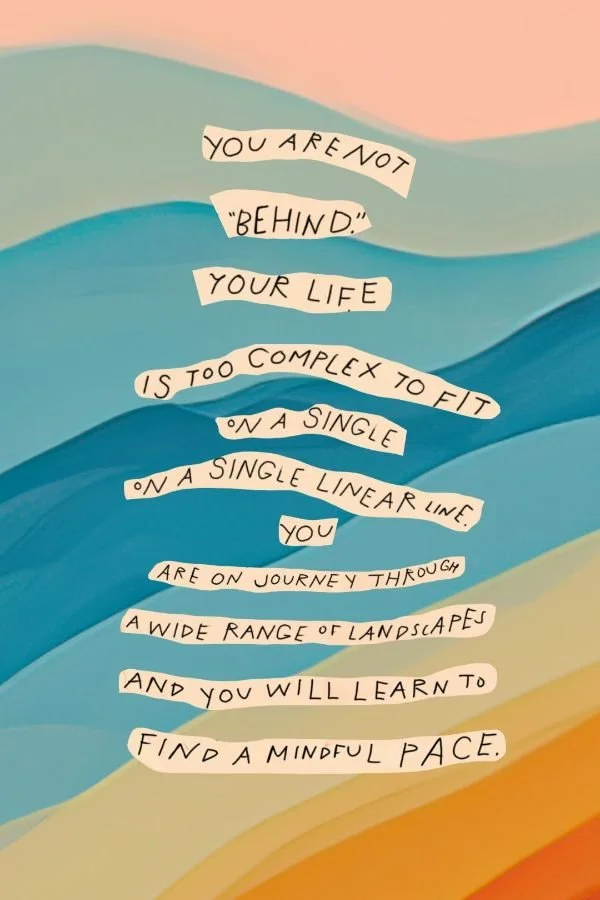 YOU ARE NOT
"BEHIND."
YOUR LIFE
IS TOO COMPLEX TO FIT
ON A SINGLE
ON A SINGLE LINEAR LINE.
YOU
ARE ON JOURNEY THROUGH
A WIDE RANGE OF LANDSCAPES
AND YOU WILL LEARN TO
FIND A MINDFUL PACE.